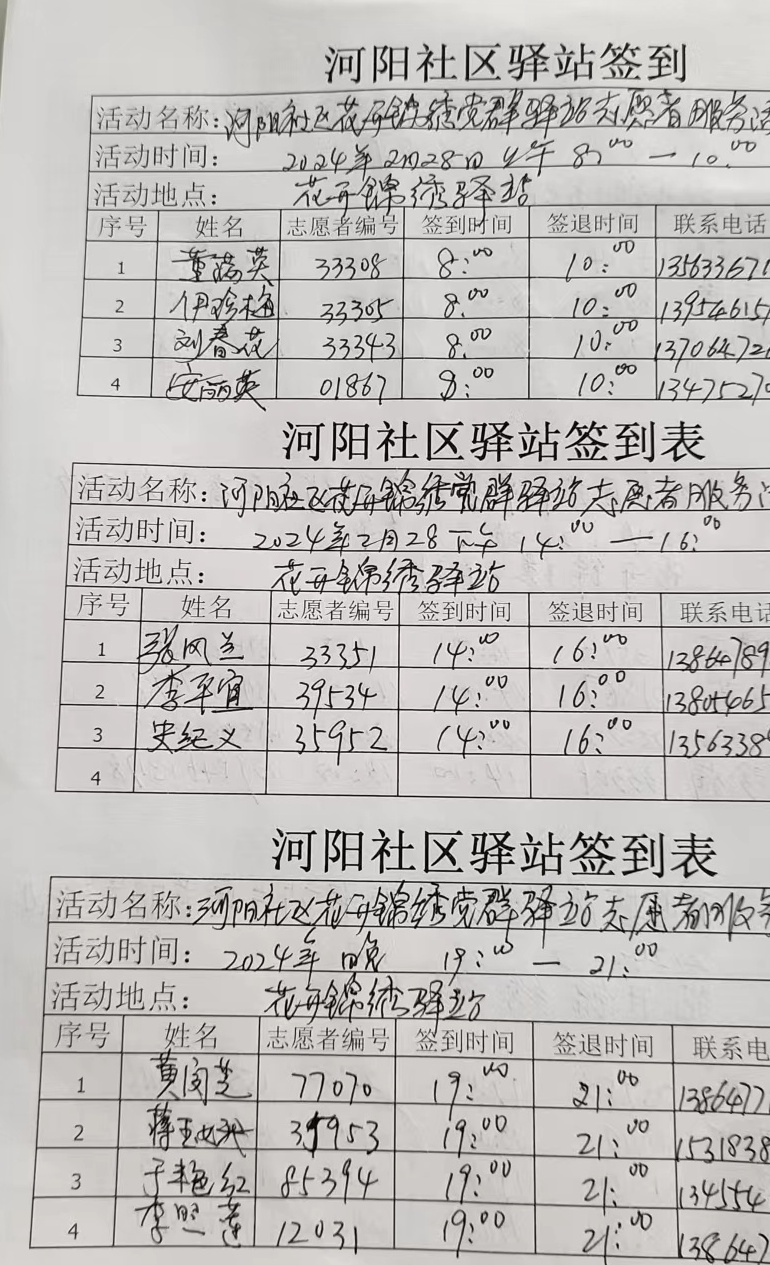 河阳社区驿站签到
活动名称:河阳社区花开锦绣党群驿站志愿者服务活
活动时间: 2024年2月28日上午 8:00 — 10:00
活动地点: 花开锦绣驿站
序号 姓名 志愿者编号 签到时间 签退时间 联系电话
1 董瑞英 33308 8:00 10:00 135633671
2 伊珍梅 33305 8:00 10:00 139546151
3 刘春花 33343 8:00 10:00 13706472
4 安丽英 01867 8:00 10:00 13475270
河阳社区驿站签到表
活动名称:河阳社区花开锦绣党群驿站志愿者服务活
活动时间: 2024年2月28 下午 14:00 — 16:00
活动地点: 花开锦绣驿站
序号 姓名 志愿者编号 签到时间 签退时间 联系电话
1 张风兰 33351 14:00 16:00 13864789
2 李平宜 39534 14:00 16:00 13805465
3 史纪义 35952 14:00 16:00 1356338
4
河阳社区驿站签到表
活动名称:河阳社区花开锦绣党群驿站志愿者服务
活动时间: 2024年 晚 19:00 — 21:00
活动地点: 花开锦绣驿站
序号 姓名 志愿者编号 签到时间 签退时间 联系电
1 黄闰芝 77070 19:00 21:00 1386477
2 35953 19:00 21:00 1531838
3 于艳红 85394 19:00 21:00 134554
4 李照莲 12031 19:00 21:00 138647